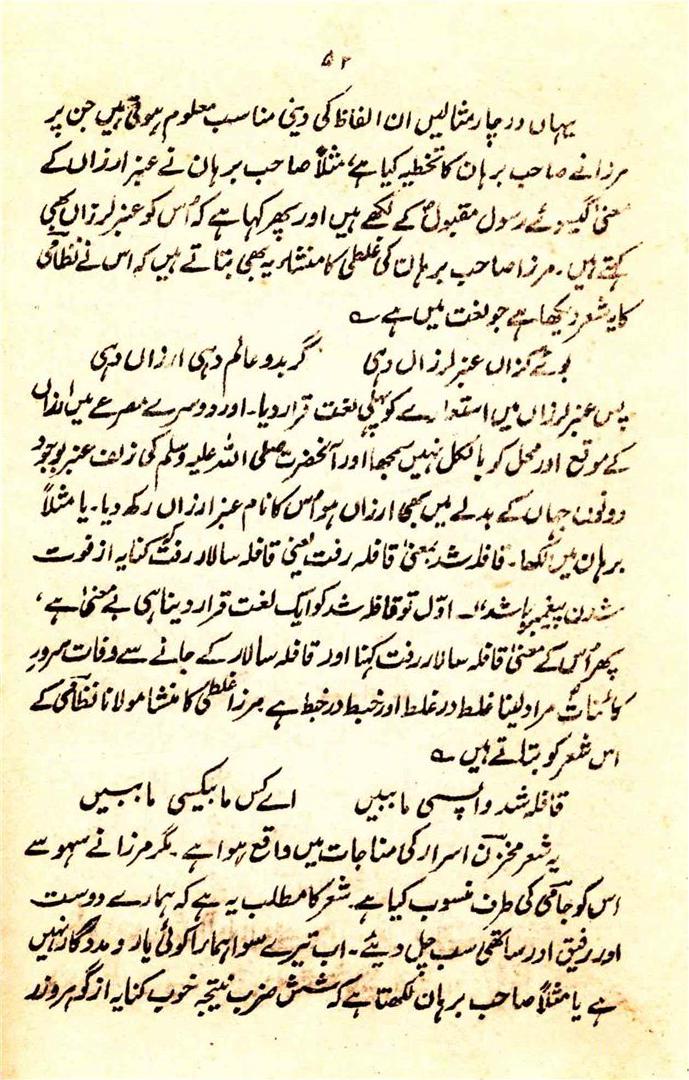 ۵۲
یہاں دو چار مثالیں ان الفاظ کی دینی مناسب معلوم ہوتی ہیں جن پر
مرزا نے صاحب برہان کا تخطیہ کیا ہے، مثلاً صاحب برہان نے عنبر ارزاں کے
معنیٰ گیسوئے رسول مقبولؐ کے لکھے ہیں اور پھر کہا ہے کہ اُس کو عنبر لرزاں بھی
کہتے ہیں۔ مرزا صاحب برہان کی غلطی کا منشاء یہ بھی بتاتے ہیں کہ اس نے نظامی
کا یہ شعر دیکھا ہے جو نعت میں ہے ؎
بوئے کزاں عنبر لرزاں دہی گر بدو عالم دہی ارزاں دہی
پس عنبر لرزاں میں استعارے کو پہلی لغت قرار دیا۔ اور دوسرے مصرعے میں ارزاں
کے موقع اور محل کو بالکل نہیں سمجھا اور آنحضرت صلی اللہ علیہ وسلم کی زلف عنبر بو جو
دونوں جہاں کے بدلے میں بھی ارزاں ہو اُس کا نام عنبر ارزاں رکھ دیا۔ یا مثلاً
برہان میں لکھا۔ قافلہ شد بمعنیٰ قافلہ رفت یعنی قافلہ سالار رفت کہ کنایہ از فوت
شدن پیغمبر باشد"۔ اوّل تو قافلہ شد کو ایک لغت قرار دینا ہی بے معنیٰ ہے،
پھر اُس کے معنیٰ قافلہ سالار رفت کہنا اور قافلہ سالار کے جانے سے وفات سرورِ
کائناتؐ مراد لینا غلط در غلط اور خبط در خبط ہے مرزا غلطی کا منشا مولانا نظامی کے
اس شعر کو بتاتے ہیں ؎
قافلہ شد واپسی ما ببیں اے کس ما بیکسی ما ببیں
یہ شعر مخزن اسرار کی مناجات میں واقع ہوا ہے۔ مگر مرزا نے سہو سے
اس کو جامی کی طرف منسوب کیا ہے۔ شعر کا مطلب یہ ہے کہ ہمارے دوست
اور رفیق اور ساتھی سب چل دیئے۔ اب تیرے سوا ہمارا کوئی یار و مددگار نہیں
ہے یا مثلاً صاحب برہان لکھتا ہے کہ شش ضرب نتیجہ خوب کنایہ از گہر و زر